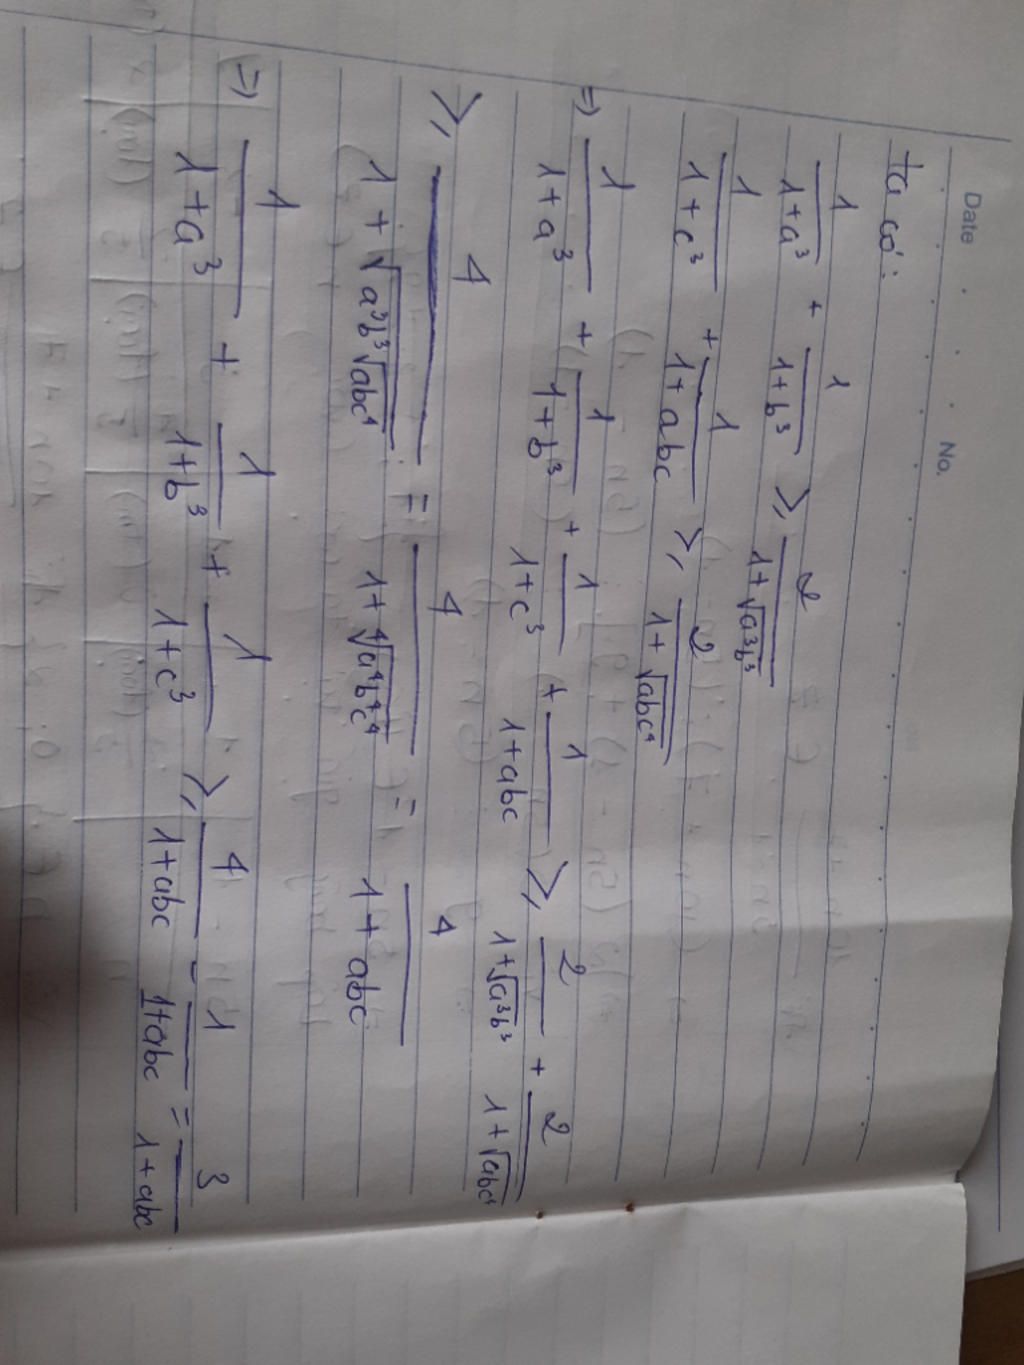 Date No.
ta có:
1/(1+a³) + 1/(1+b³) ≥ 2/(1+√(a³b³))
1/(1+c³) + 1/(1+abc) ≥ 2/(1+√(abc⁴))
=) 1/(1+a³) + 1/(1+b³) + 1/(1+c³) + 1/(1+abc) ≥ 2/(1+√(a³b³)) + 2/(1+√(abc⁴))
≥ 4/(1+√(a³b³√(abc⁴))) = 4/(1+⁴√(a⁴b⁴c⁴)) = 4/(1+abc)
=) 1/(1+a³) + 1/(1+b³) + 1/(1+c³) ≥ 4/(1+abc) - 1/(1+abc) = 3/(1+abc)